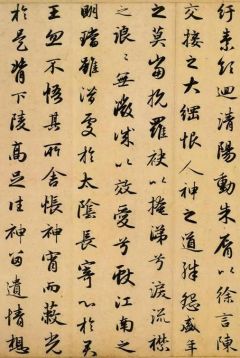 紆素領迴清陽動朱脣以徐言陳
交接之大綱恨人神之道殊怨盛年
之莫當抗羅袂以掩涕兮淚流襟
之浪浪無微誠以效愛兮獻江南之
明璫雖潛處於太陰長寄心於君
王忽不悟其所舍悵神宵而蔽光
於是背下陵高足往神留遺情想